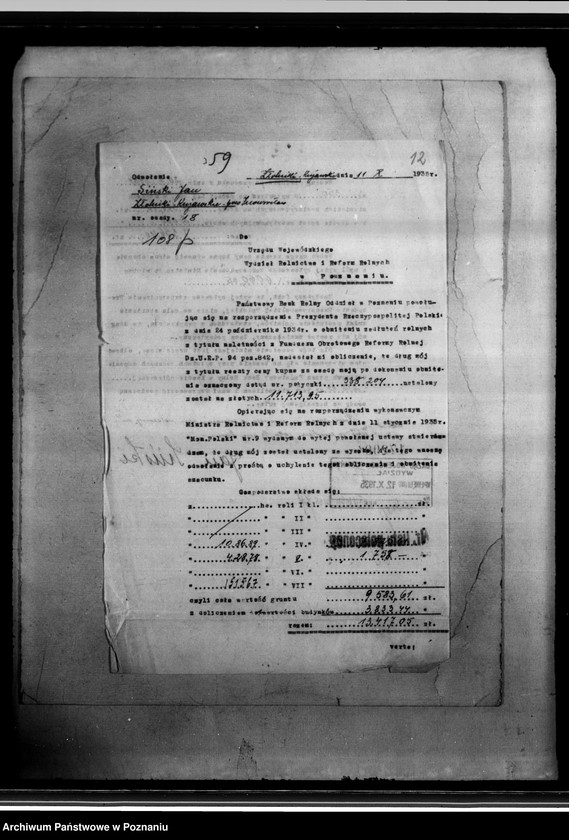 59
12
Odnośnie
Złotniki-Kujawskie dnia 11 X 1935r.
Siński Jan
Złotniki Kujawskie pow. Inowrocław
nr. osady. 18
108/p
Do
Urzędu Wojewódzkiego
Wydział Rolnictwa i Reform Rolnych
w Poznaniu.
Państwowy Bank Rolny Oddział w Poznaniu powołu-
jąc się na rozporządzenie Prezydenta Rzeczypospolitej Polskiej
z dnia 24 października 1934r. o obniżeniu zadłużeń rolnych
z tytułu należności z Funduszu Obrotowego Reformy Rolnej
Dz.U.R.P. 94 poz.842, nadesłał mi obliczenie, że dług mój
z tytułu reszty ceny kupna za osadę moją po dokonaniu obniże-
nia oznaczony dotąd nr. pożyczki 338 204 ustalony
został na złotych. 11.713,95
Opierając się na rozporządzeniu wykonawczym
Ministra Rolnictwa i Reform Rolnych z dnia 11 stycznia 1935r.
"Mon.Polski" nr.9 wydanym do wyżej powołanej ustawy stwierdzam
że dług mój został ustalony za wysoko,
odwołanie z prośbą o uchylenie tego obliczenia i obniżenie
szacunku.
WYDZIAŁ
12.X.1935
Gospodarstwo składa się:
z ha. roli I kl. zł.
" " " II " "
" " " III " "
" 10.36.39 " " IV. " "
" 4.28.78 " " V. " 1.758 — "
" " " VI. " "
" 151567 " " VII " "
czyli cała wartość gruntu 9.583,61 zł.
z doliczeniem wartości budynków 3.833,44 "
razem: 13.417.05 zł.
verte;
Archiwum Państwowe w Poznaniu